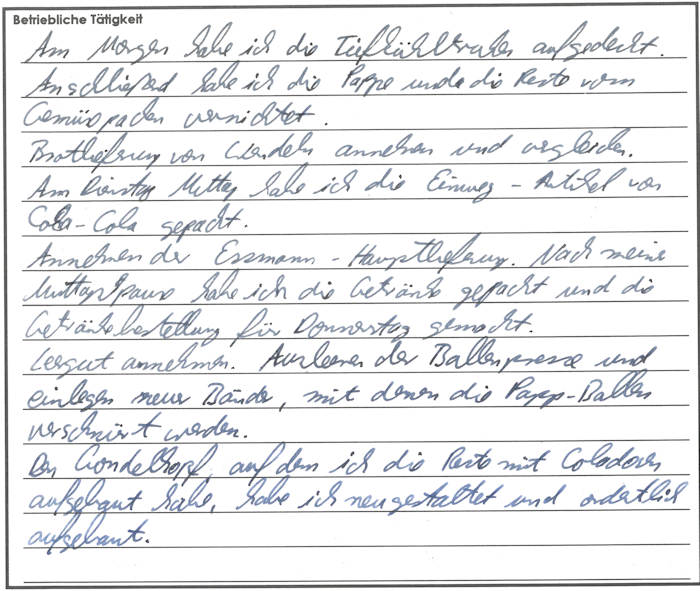 Betriebliche Tätigkeit
Am Morgen habe ich die Tiefkühltruhen aufgedeckt.
Anschließend habe ich die Pappe und die Reste vom
Gemüspacken vernichtet.
Brotlieferung von Wendeln annehmen und vergleichen.
Am Dienstag Mittag habe ich die Einweg - Artikel von
Coca-Cola gepackt.
Annehmen der Essmann - Hauptlieferung. Nach meine
Mittagspause habe ich die Getränke gepackt und die
Getränkebestellung für Donnerstag gemacht.
Leergut annehmen. Ausleeren der Ballenpresse und
einlegen neuer Bänder, mit denen die Papp-Ballen
verschnürt werden.
Den Gondelkopf, auf dem ich die Reste mit Coladosen
aufgebaut habe, habe ich neu gestaltet und ordentlich
aufgebaut.